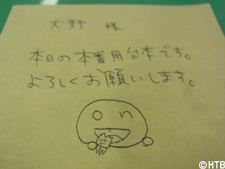 大野 様
本日の本番用台本です。
よろしくお願いします。
on
©HTB